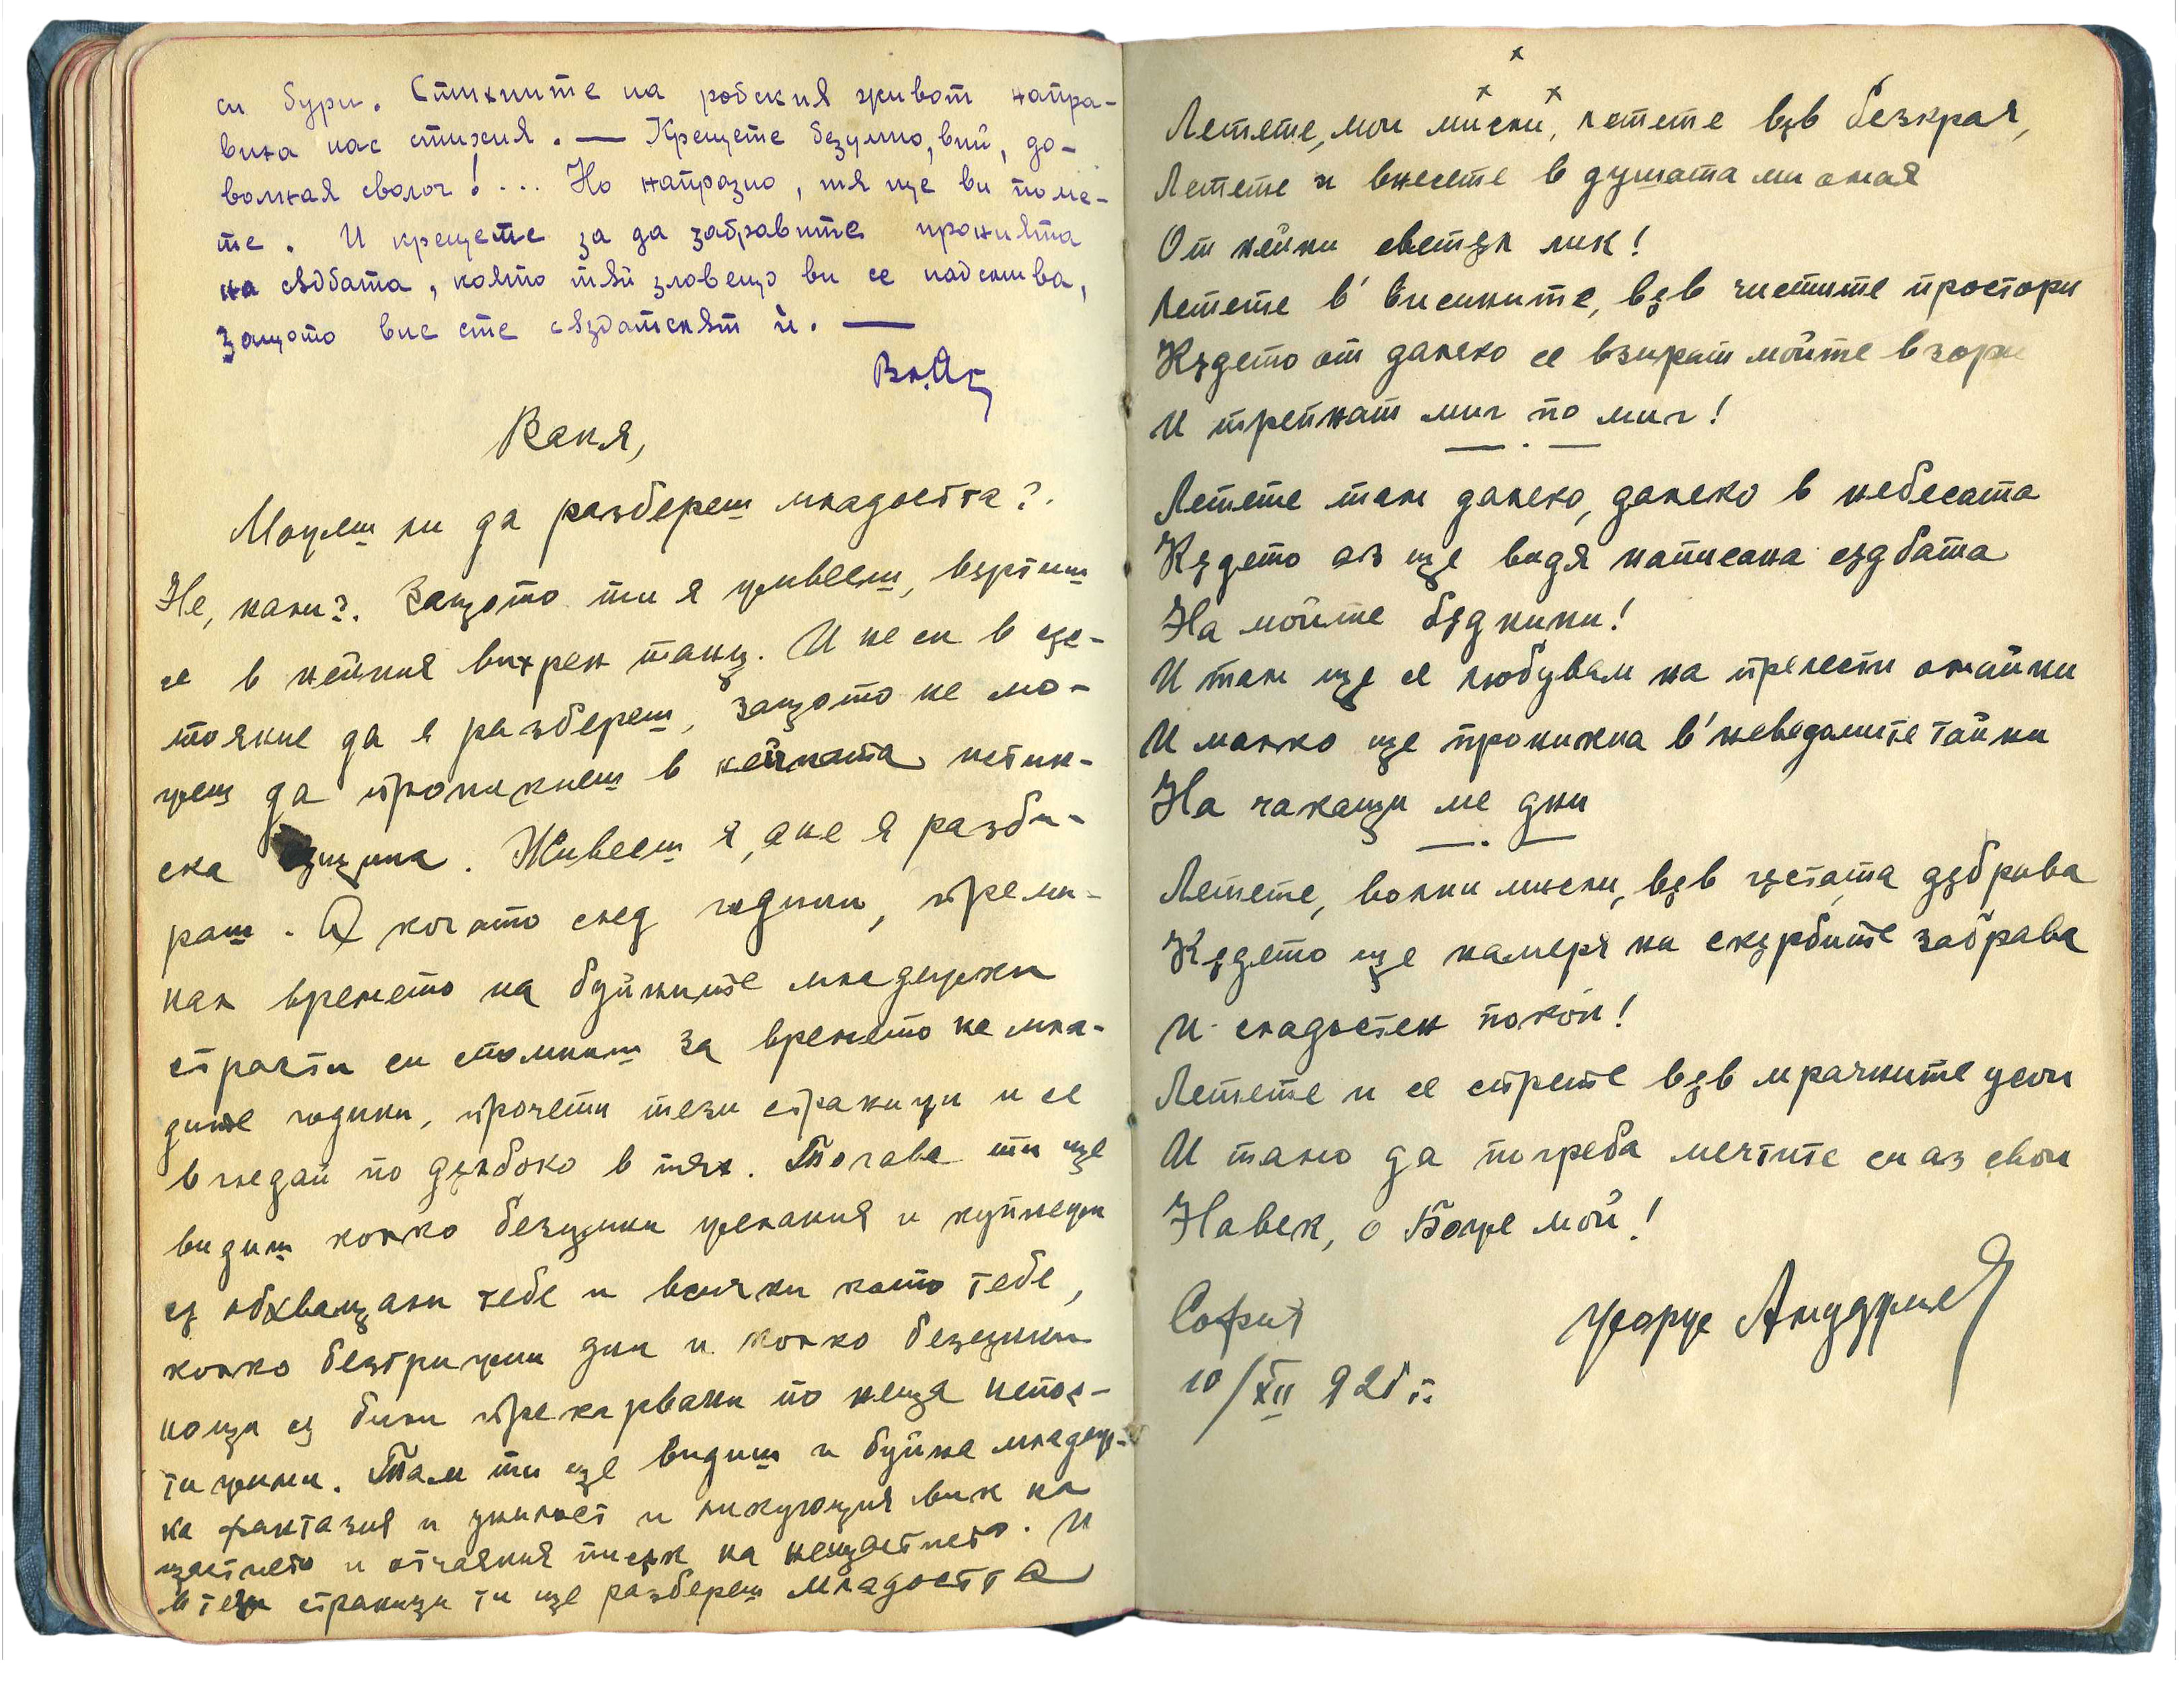 си бури. Стихиите на робския живот напра-
виха нас стихия. — Крещете безумно, вий, до-
волная сволоч! ... Но напразно, тя ще ви поме-
те. И крещете за да забравите иронията
на сѫдбата, която тъй зловещо ви се надсмива,
Защото вие сте създателят ѝ. —
Ваня,
Можеш ли да разбереш младостта?.
Не, нали?. Защото ти я живееш, въртиш
се в нейния вихрен танц. И не си в със-
тояние да я разбереш, защото не мо-
жеш да проникнеш в нейната истин-
ска същина. Живееш я, а не я разби-
раш. А когато след години, преми-
нал времето на буйните младежки
страсти си спомниш за времето на мла-
дите години, прочети тези страници и се
вгледай по дълбоко в тях. Тогава ти ще
видиш колко безумни желания и куйнежи
са обхващали тебе и всички като тебе,
колко безгрижни дни и колко безсънни
нощи са били прекарвани по неща непос-
тижими. Там ти ще видиш и буйна младеж-
ка фантазия и унилост и ликующия вик на
щастието и отчаяния писък на нещастието. И
в тези страници ти ще разбереш младостта
х
х х
Летете, мои мисли, летете във безкрая,
Летете и внесете в душата ми омая
От нейни светъл лик!
Летете в' висините, във чистите простори
Където от далеко се взират мойте взори
И трепнат миг по миг!
— . —
Летете там далеко, далеко в небесата
Където аз ще видя написана съдбата
На мойте бъднини!
И там ще се любувам на прелести омайни
И малко ще проникна в' неведомите тайни
На чакащи ме дни
— . —
Летете, волни мисли, във гъстата дъбрава
Където ще намеря на скърбите забрава
И сладостен покой!
Летете и се спрете във мрачните усои
И тамо да погреба мечтите си аз свои
Навек, о Боже мой!
София
10/XII 926 г.